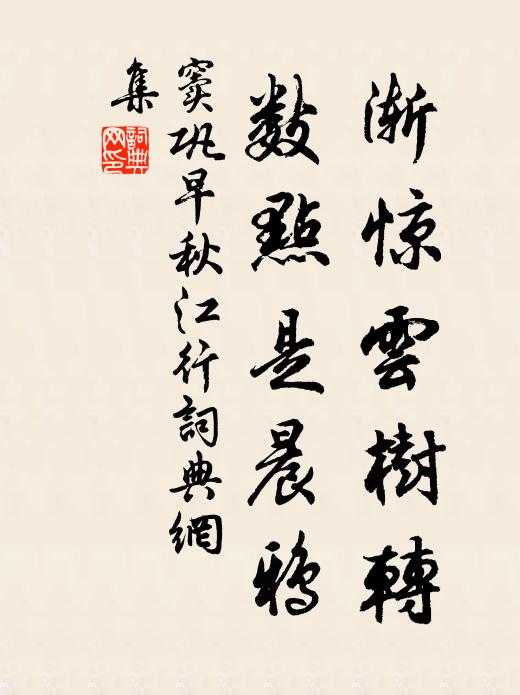 渐惊雲樹轉
數點是晨鴉
竇巩早秋江行詞典網
集
詞典網印